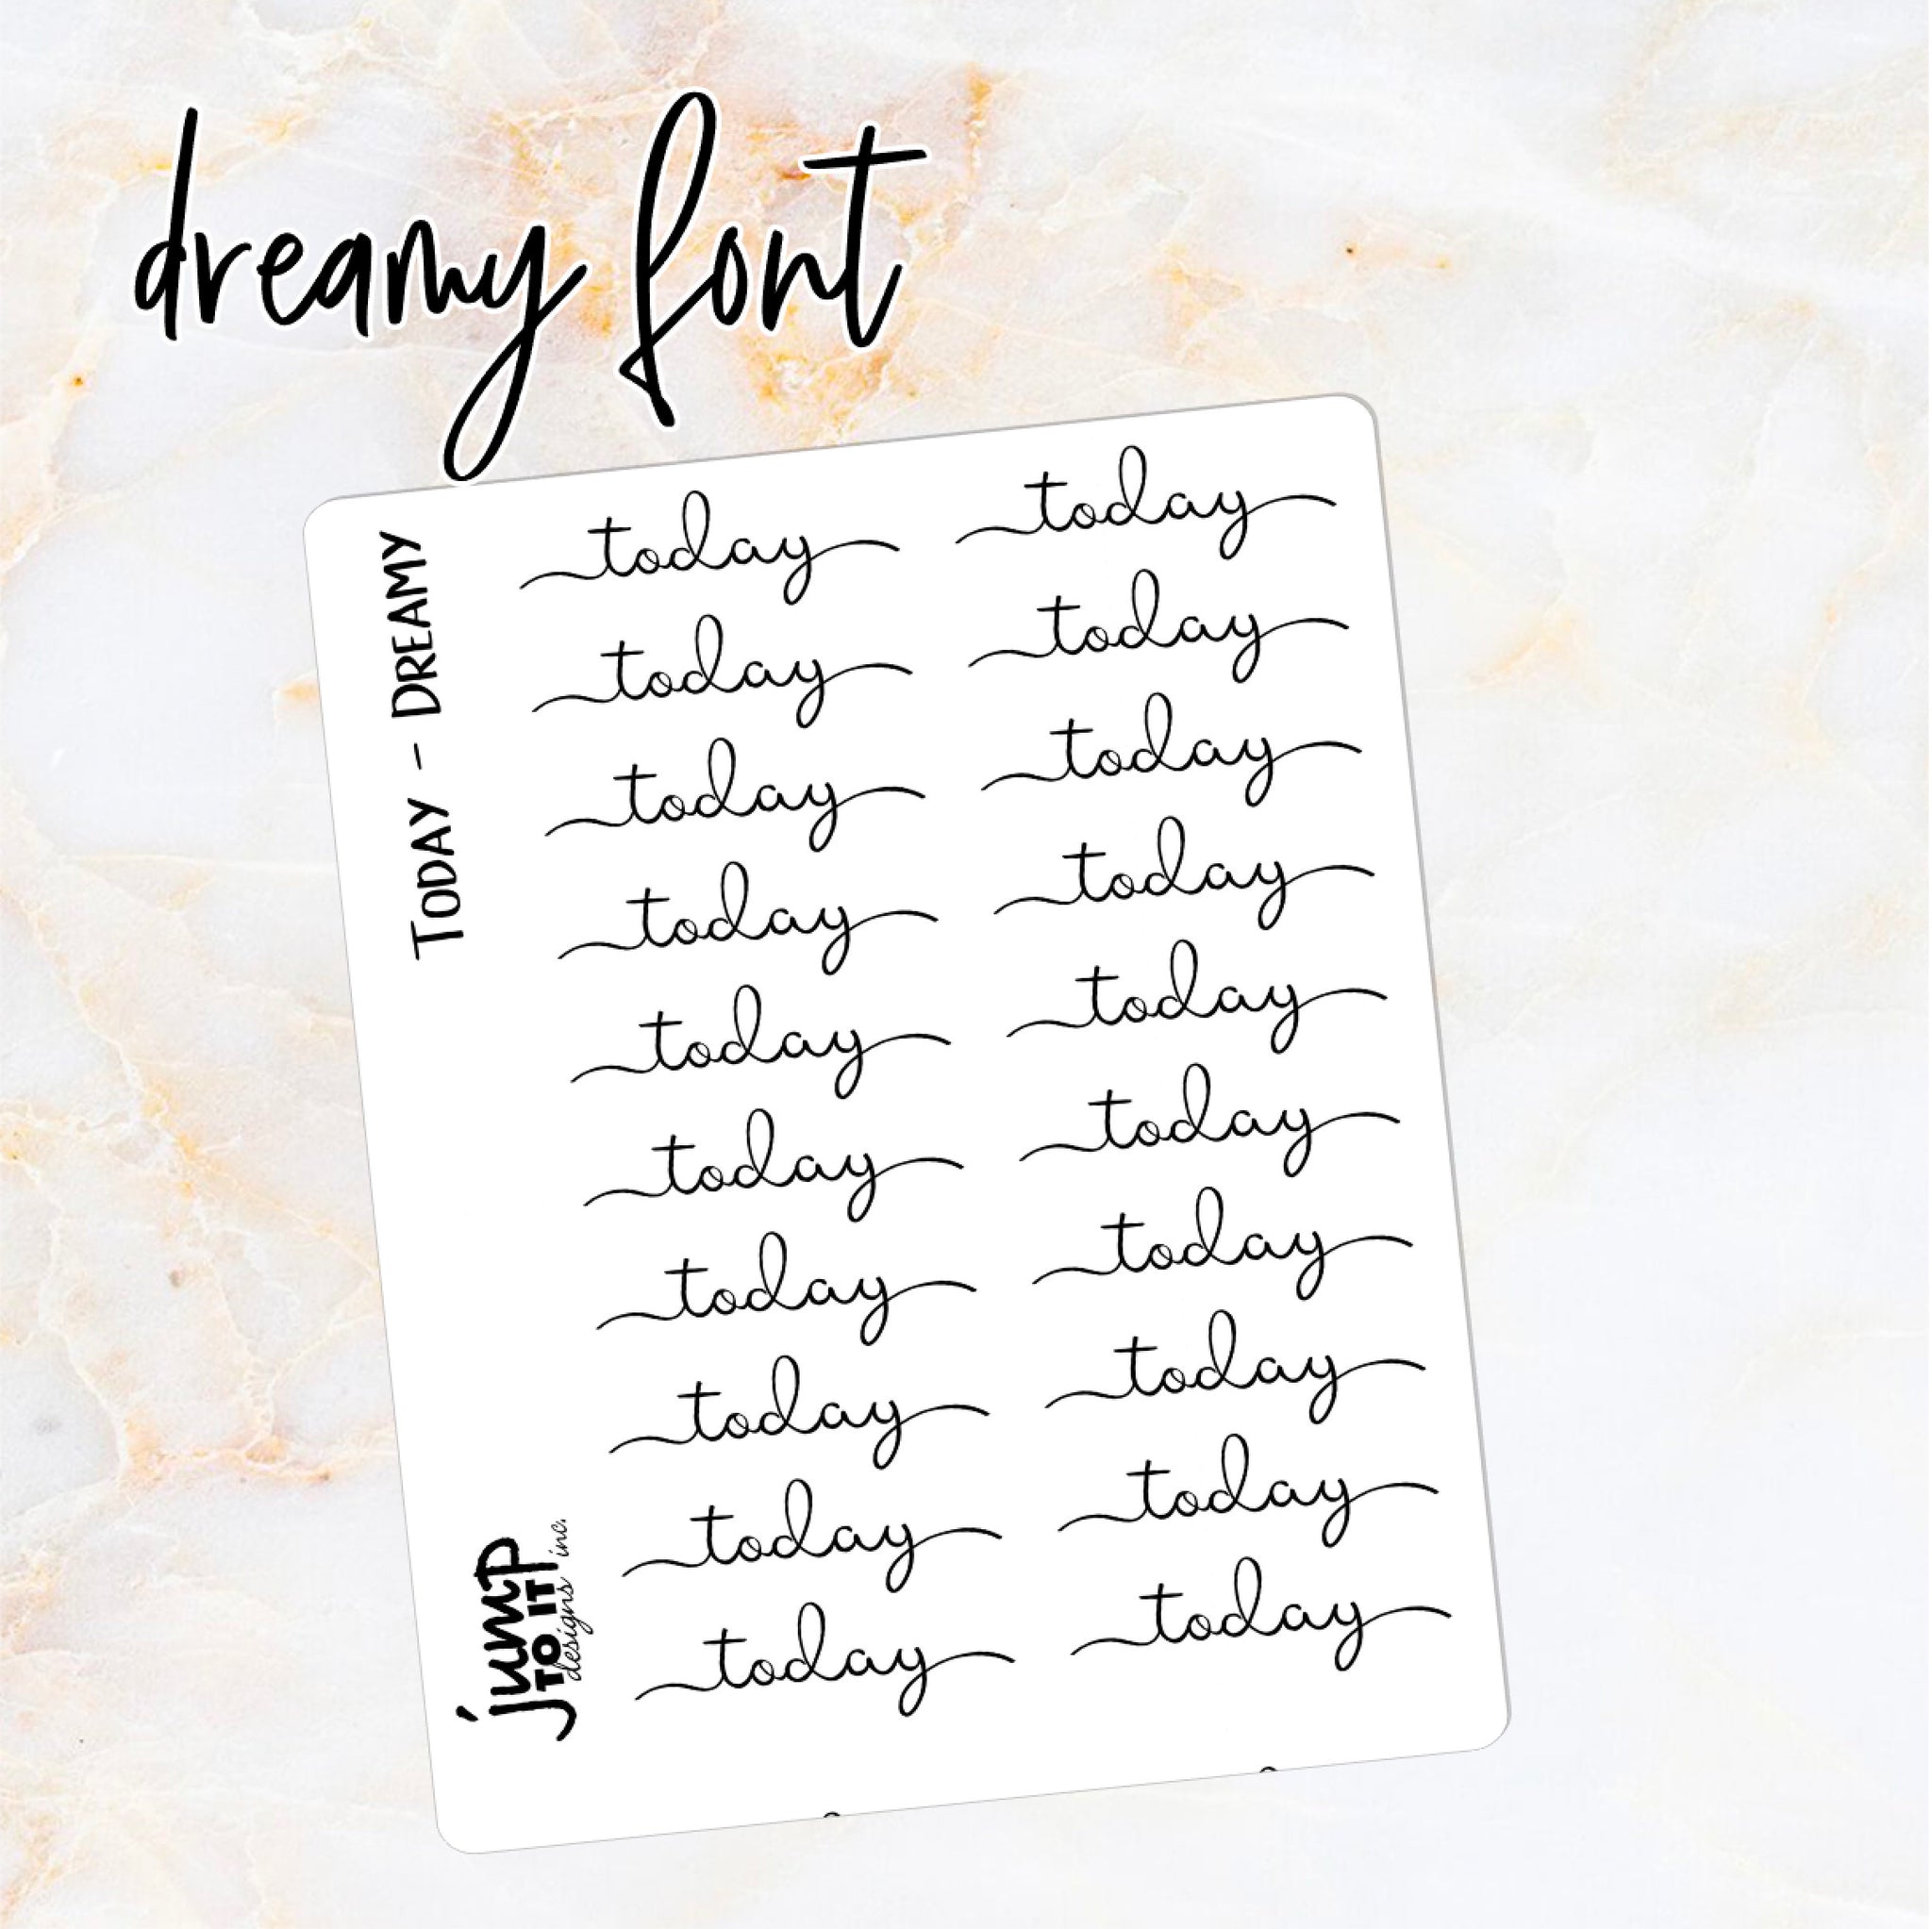 dreamy font
TODAY - DREAMY
today today
today today
today today
today today
today today
today today
today today
today today
today today
today today
jump
TO IT!
designs inc.